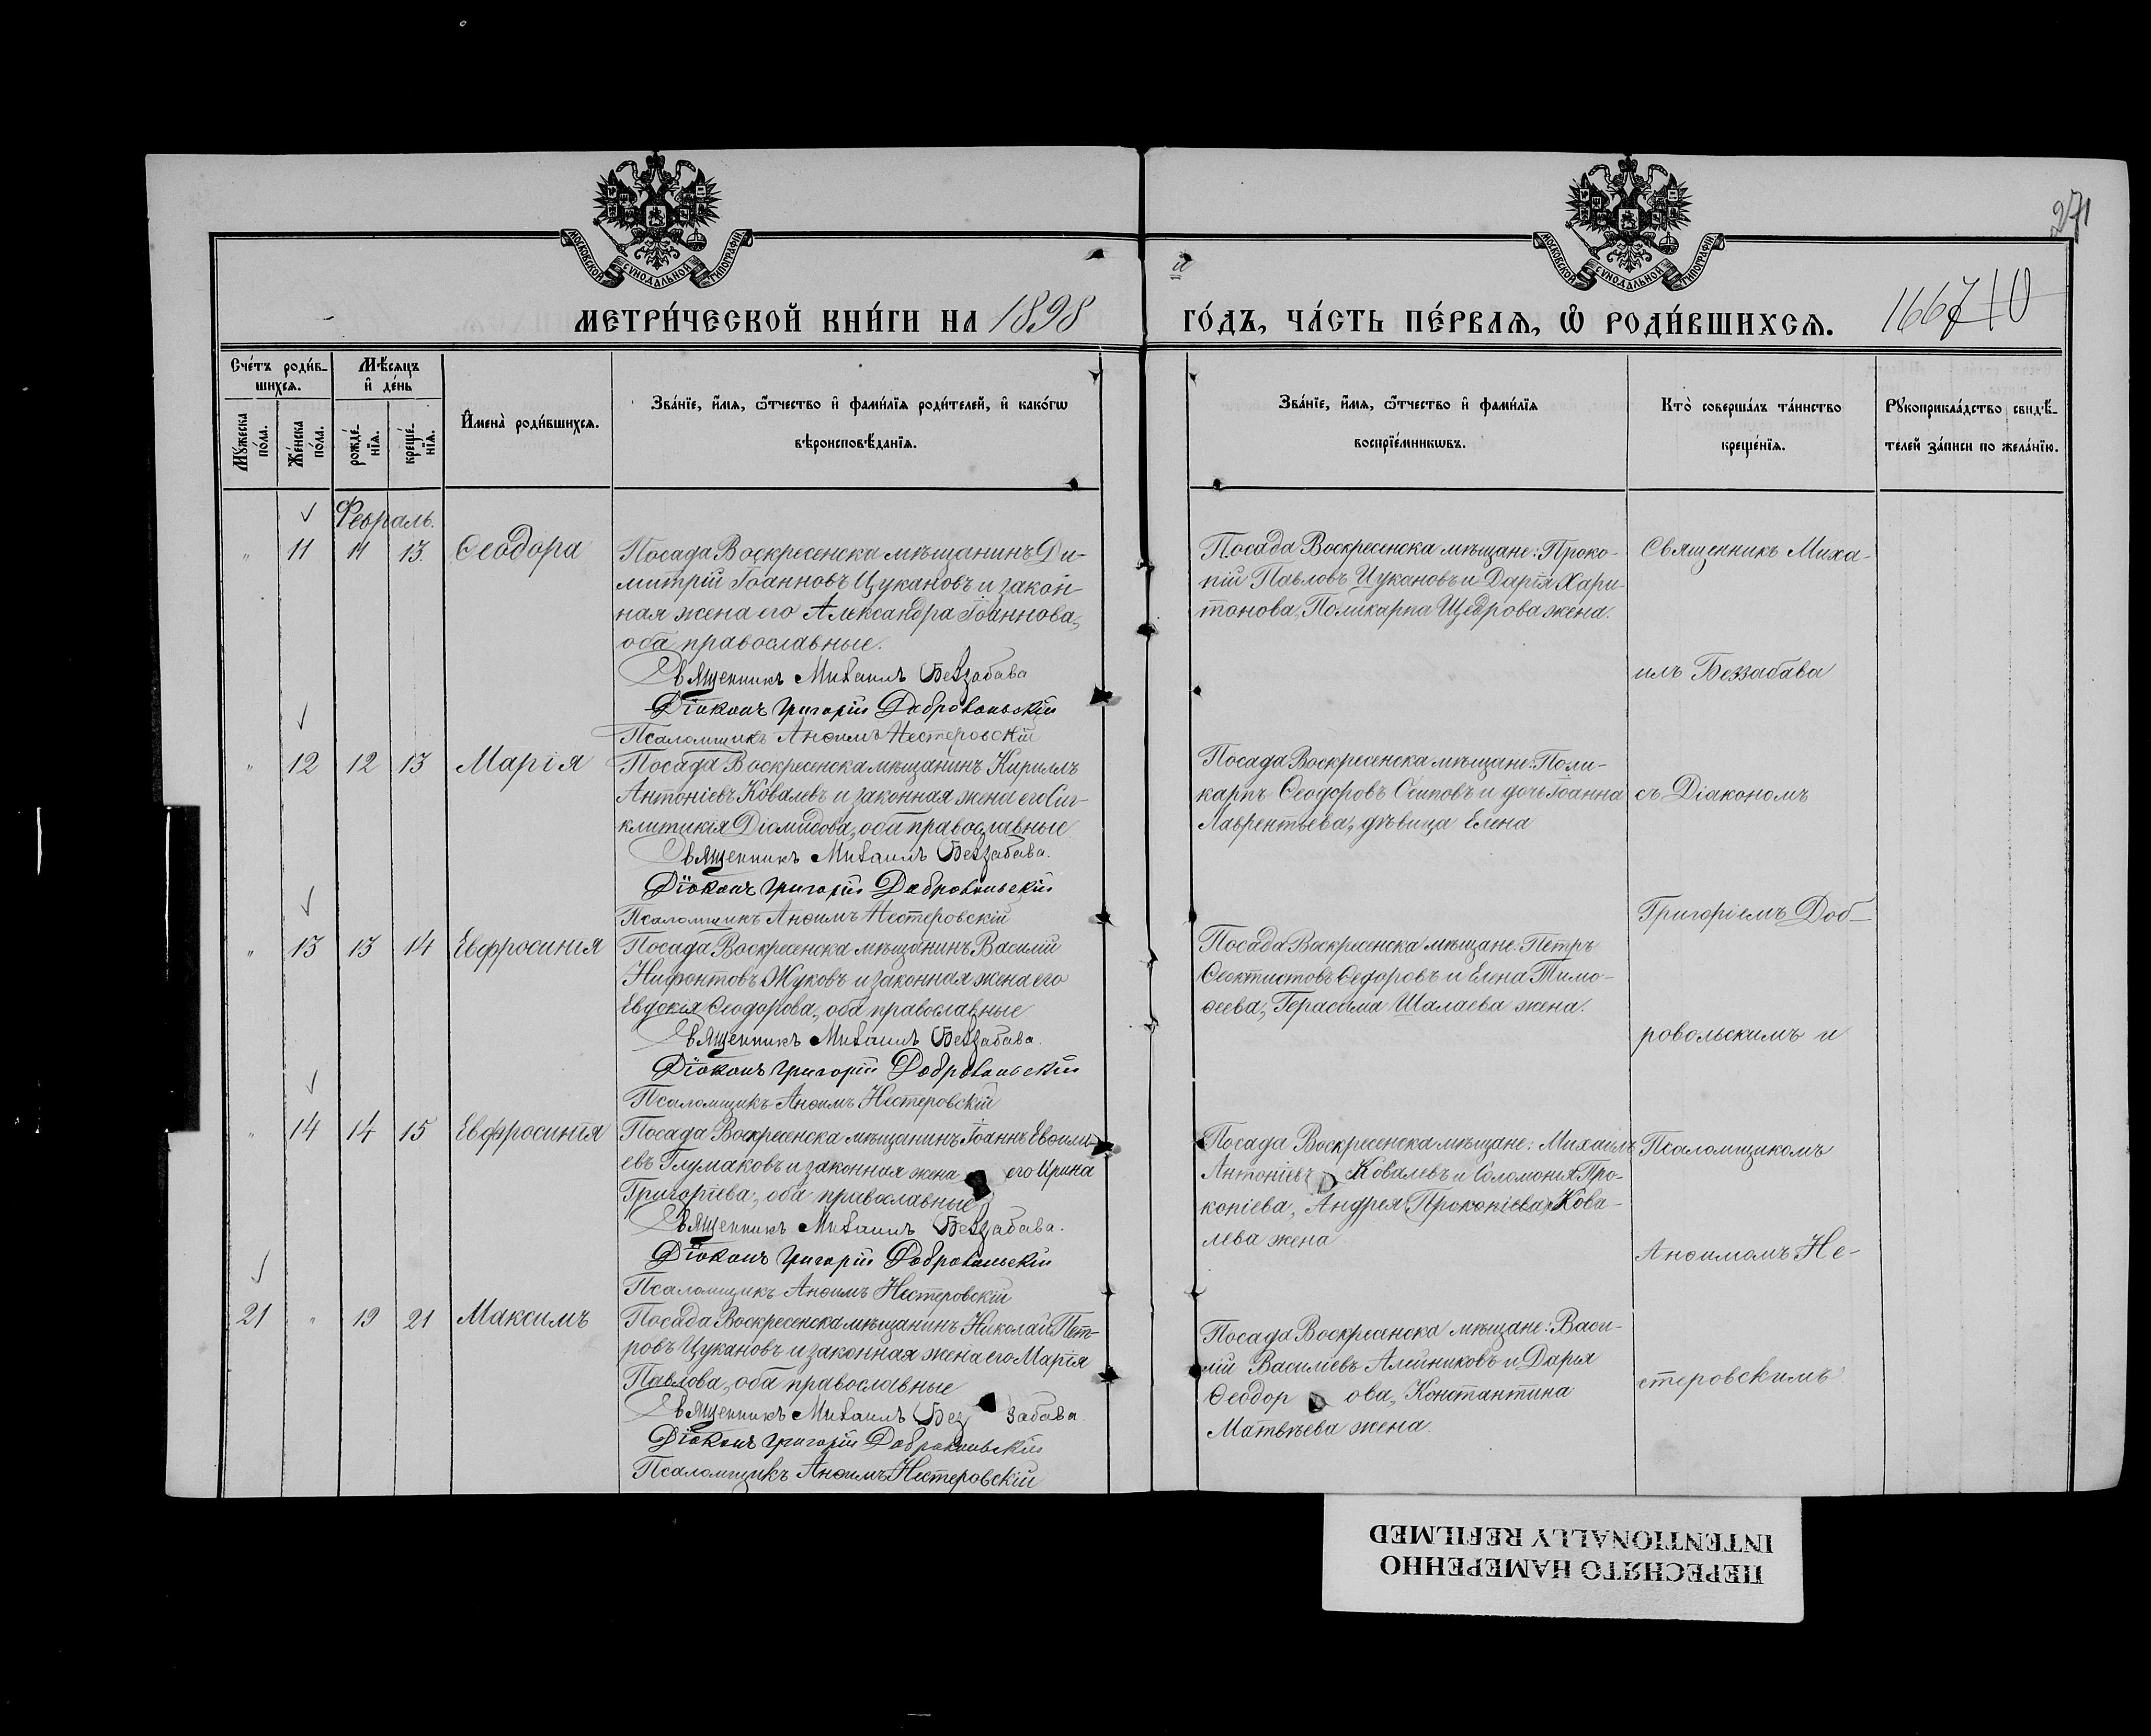 271
МОСКОВСКОЙ СУНОДАЛЬНОЙ ТИПОГРАФІИ
МОСКОВСКОЙ СУНОДАЛЬНОЙ ТИПОГРАФІИ
МЕТРИ́ЧЕСКОЙ КНИ́ГИ НА 1898
ГО́ДЪ, ЧА́СТЬ ПЕ́РВАЯ, Ѡ҆ РОДИ́ВШИХСЯ.
Сче́тъ роди́в-
шихся.
Мѣ́сяцъ
и҆ де́нь
Мꙋ́жеска
по́ла.
Же́нска
по́ла.
рожде́-
нїя.
креще́-
нїя.
И҆мена̀ роди́вшихся.
Зва́нїе, и҆́мя, ѻ҆́тчество и҆ фами́лїя роди́телей, и҆ како́гѡ
вѣроисповѣ́данїя.
Зва́нїе, и҆́мя, ѻ҆́тчество и҆ фами́лїя
воспрїе́мникѡвъ.
Кто̀ соверша́лъ та́инство
креще́нїя.
Рꙋкоприкла́дство свидѣ́-
телей за́писи по жела́нїю.
Февраль.
" 11 11 13. Ѳеодора
Посада Воскресенска мѣщанинъ Ди-
митрій Іоанновъ Цукановъ и закон-
ная жена его Александра Іоаннова,
оба православные.
Священникъ Михаилъ Беззабава
Діаконъ Григорій Добровольскій
Псаломщикъ Анѳимъ Нестеровскій
Посада Воскресенска мѣщане: Проко-
пій Павловъ Цукановъ и Дарія Хари-
тонова, Поликарпа Щедрова жена.
Священникъ Миха-
илъ Беззабава
" 12 12 13 Марія
Посада Воскресенска мѣщанинъ Кириллъ
Антоніевъ Ковалевъ и законная жена его Син-
клитикія Діомидова, оба православные
Священникъ Михаилъ Беззабава.
Діаконъ Григорій Добровольскій
Псаломщикъ Анѳимъ Нестеровскій
Посада Воскресенска мѣщане: Поли-
карпъ Ѳеодоровъ Осиповъ и дочь Іоанна
Лаврентьева, дѣвица Елена
съ Діакономъ
Григоріемъ Доб-
" 13 13 14 Евфросинія
Посада Воскресенска мѣщанинъ Василій
Нифонтовъ Жуковъ и законная жена его
Евдокія Ѳеодорова, оба православные
Священникъ Михаилъ Беззабава.
Діаконъ Григорій Добровольскій
Псаломщикъ Анѳимъ Нестеровскій
Посада Воскресенска мѣщане: Петръ
Ѳеоктистовъ Ѳедоровъ и Елена Тимо-
ѳеева, Герасима Шалаева жена.
ровольскимъ и
" 14 14 15 Евфросинія
Посада Воскресенска мѣщанинъ Іоаннъ
евъ Глумаковъ и законная жена его Ирина
Григоріева, оба православные
Священникъ Михаилъ Беззабава.
Діаконъ Григорій Добровольскій
Псаломщикъ Анѳимъ Нестеровскій
Посада Воскресенска мѣщане: Михаилъ
Антоніевъ Ковалевъ и Соломонія Про-
копіева, Андрея Прокопіева Кова-
лева жена
Псаломщикомъ
Анѳимомъ Не-
21 " 19 21 Максимъ
Посада Воскресенска мѣщанинъ Николай Пет-
ровъ Цукановъ и законная жена его Марія
Павлова, оба православные
Священникъ Михаилъ Беззабава
Діаконъ Григорій Добровольскій
Псаломщикъ Анѳимъ Нестеровскій
Посада Воскресенска мѣщане: Васи-
лій Василіевъ Алейниковъ и Дарья
Ѳеодорова, Константина
Матвѣева жена.
стеровскимъ
ПЕРЕСНЯТО НАМЕРЕННО
INTENTIONALLY REFILMED